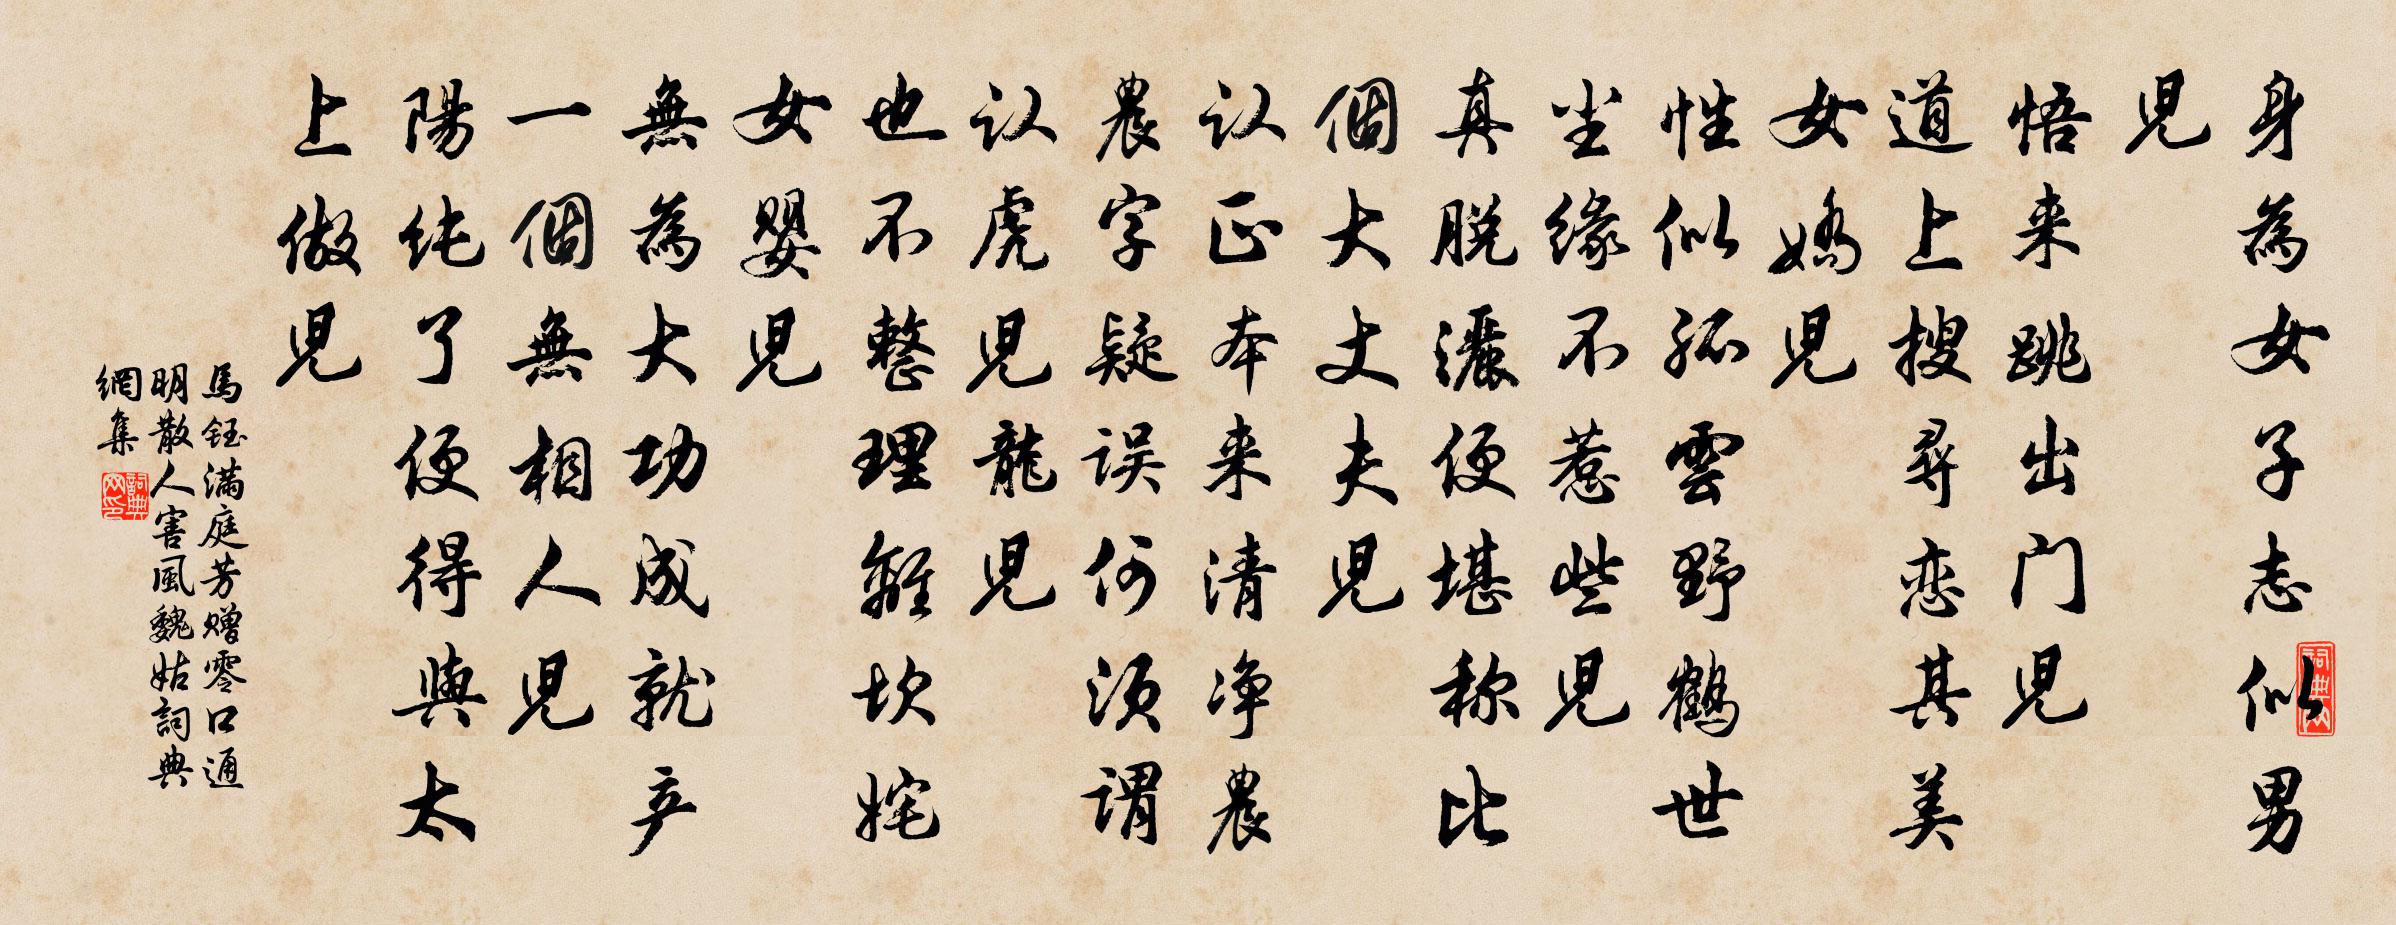 身為女子志似男
児
悟来跳出门児
道上搜尋恋其美
女嬌児
性似孤雲野鶴世
尘缘不惹些児
真脱灑便堪称比
個大丈夫児
认正本来清净農
農字疑误何须谓
认虎児龍児
也不整理離坎姹
女嬰児
無為大功成就产
一個無相人児
陽纯了便得與太
上做児
馬鈺满庭芳赠零口通
明散人害風魏姑詞典
網集